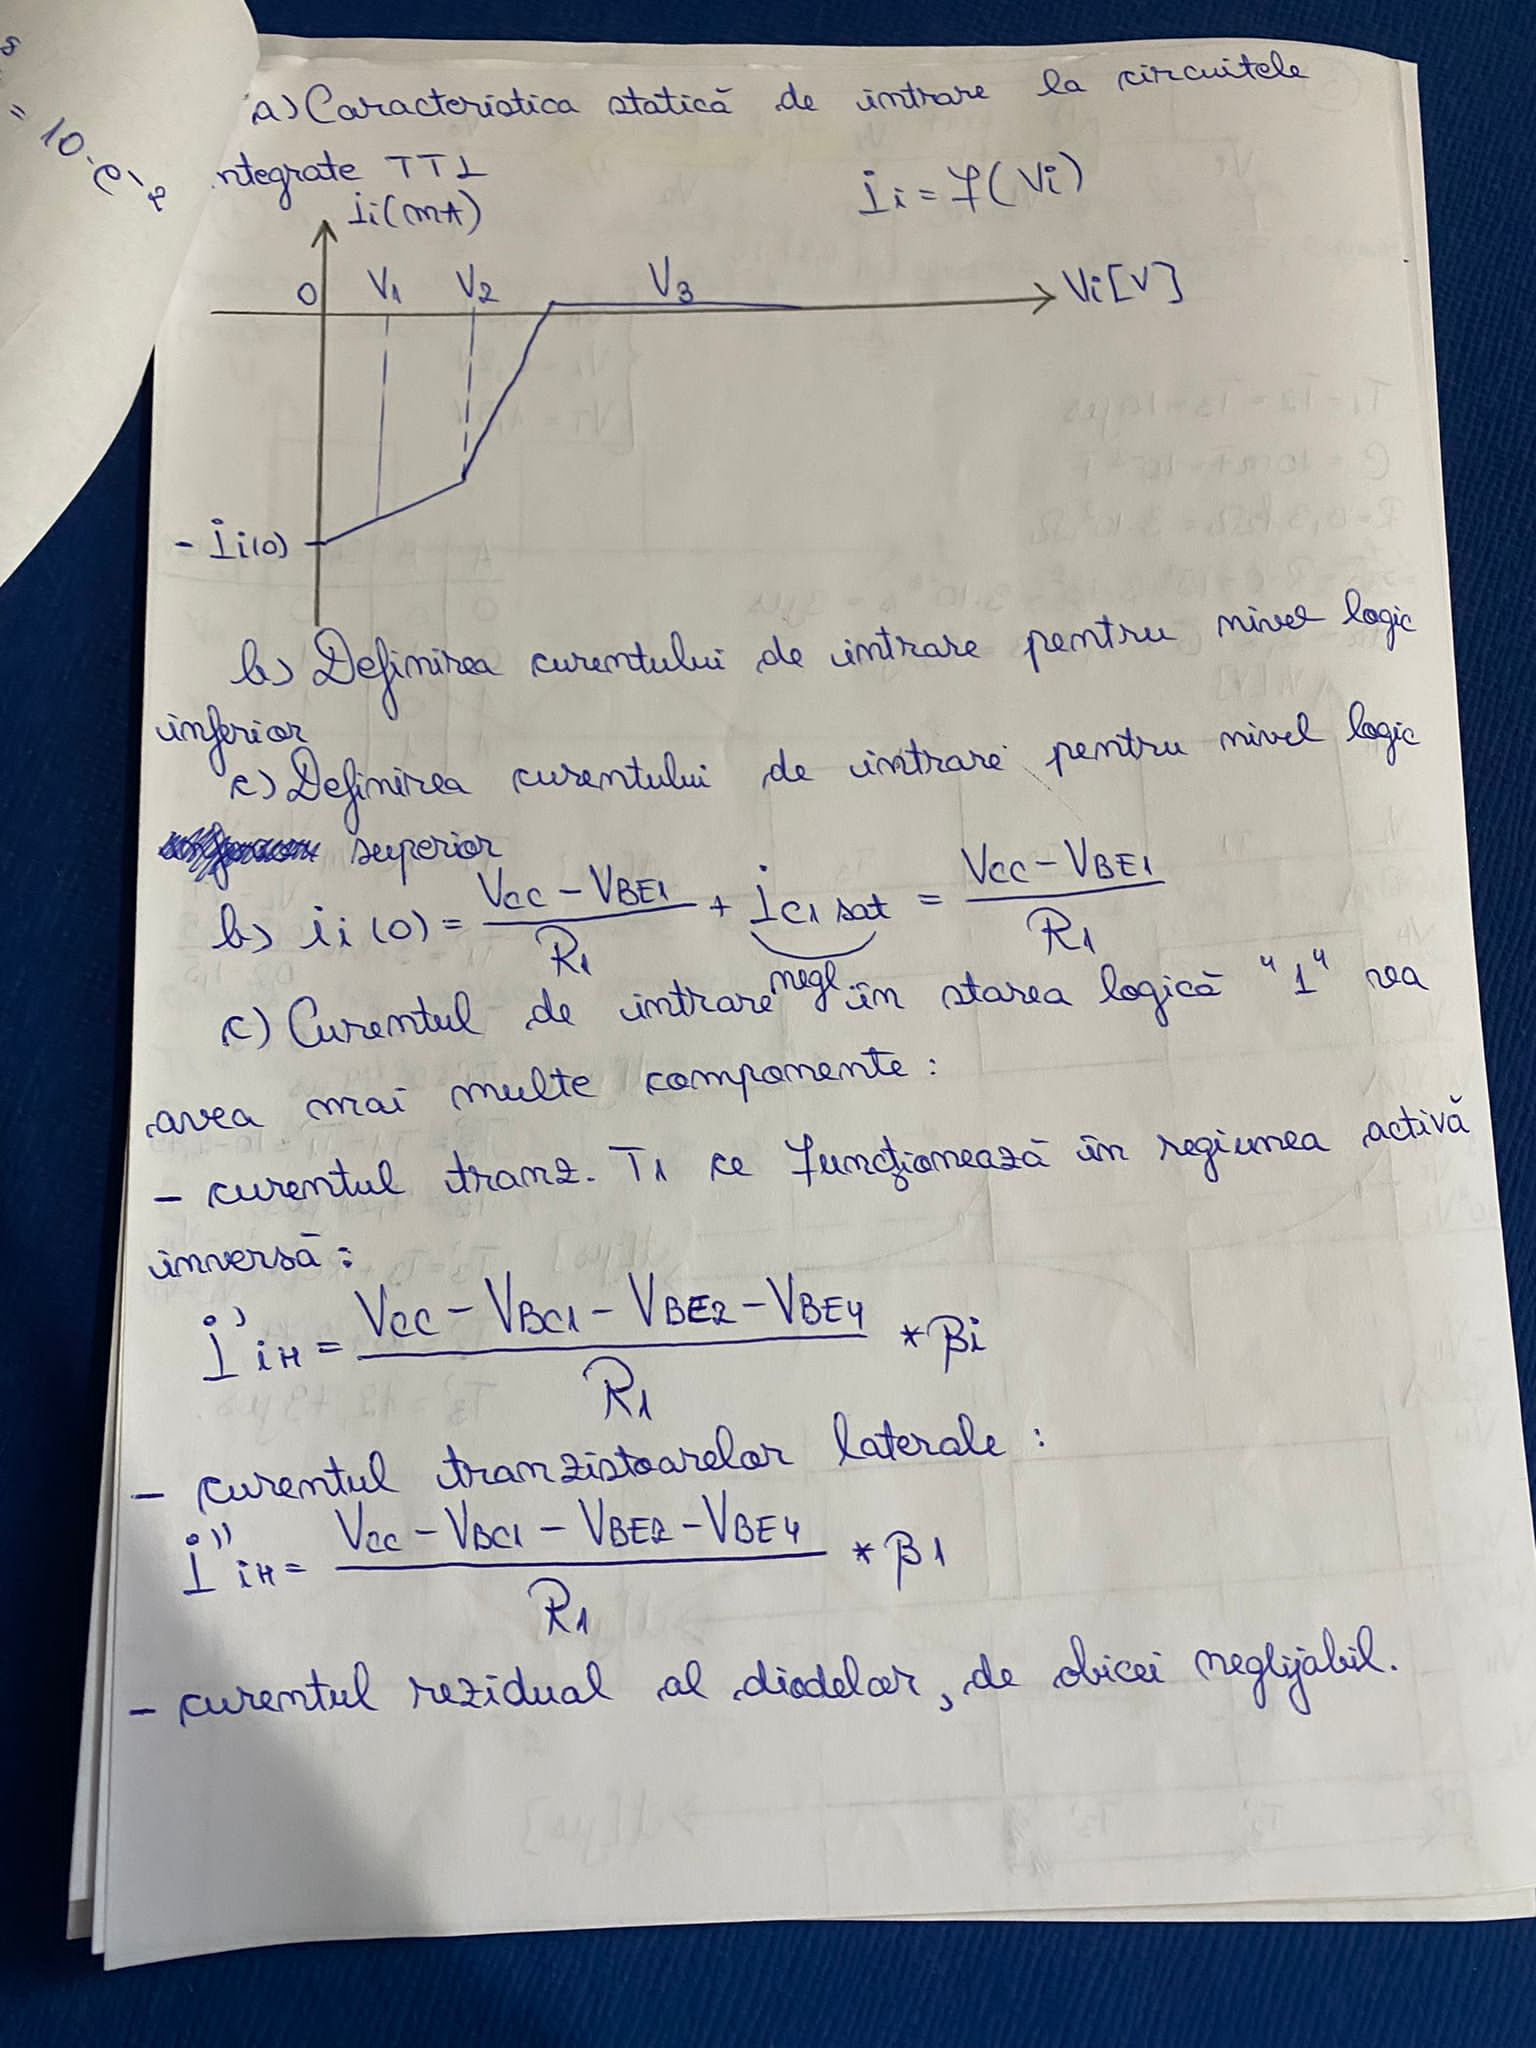 = 10·e
a) Caracteristica statică de intrare la circuitele
ntegrate TTL
Ii(mA)
Ii = f(Vi)
0 V1 V2 V3 Vi[V]
- Ii(0)
b) Definirea curentului de intrare pentru nivel logic
inferior
c) Definirea curentului de intrare pentru nivel logic
superior
b) Ii(0) = (VCC - VBE1)/R1 + IC1 sat = (VCC - VBE1)/R1
negl
c) Curentul de intrare în starea logică "1" va
avea mai multe componente:
- curentul tranz. T1 ce funcționează în regiunea activă
inversă:
I'iH = (VCC - VBC1 - VBE2 - VBE4)/R1 * βi
- curentul tranzistoarelor laterale:
I''iH = (VCC - VBC1 - VBE2 - VBE4)/R1 * β1
- curentul rezidual al diodelor, de obicei neglijabil.